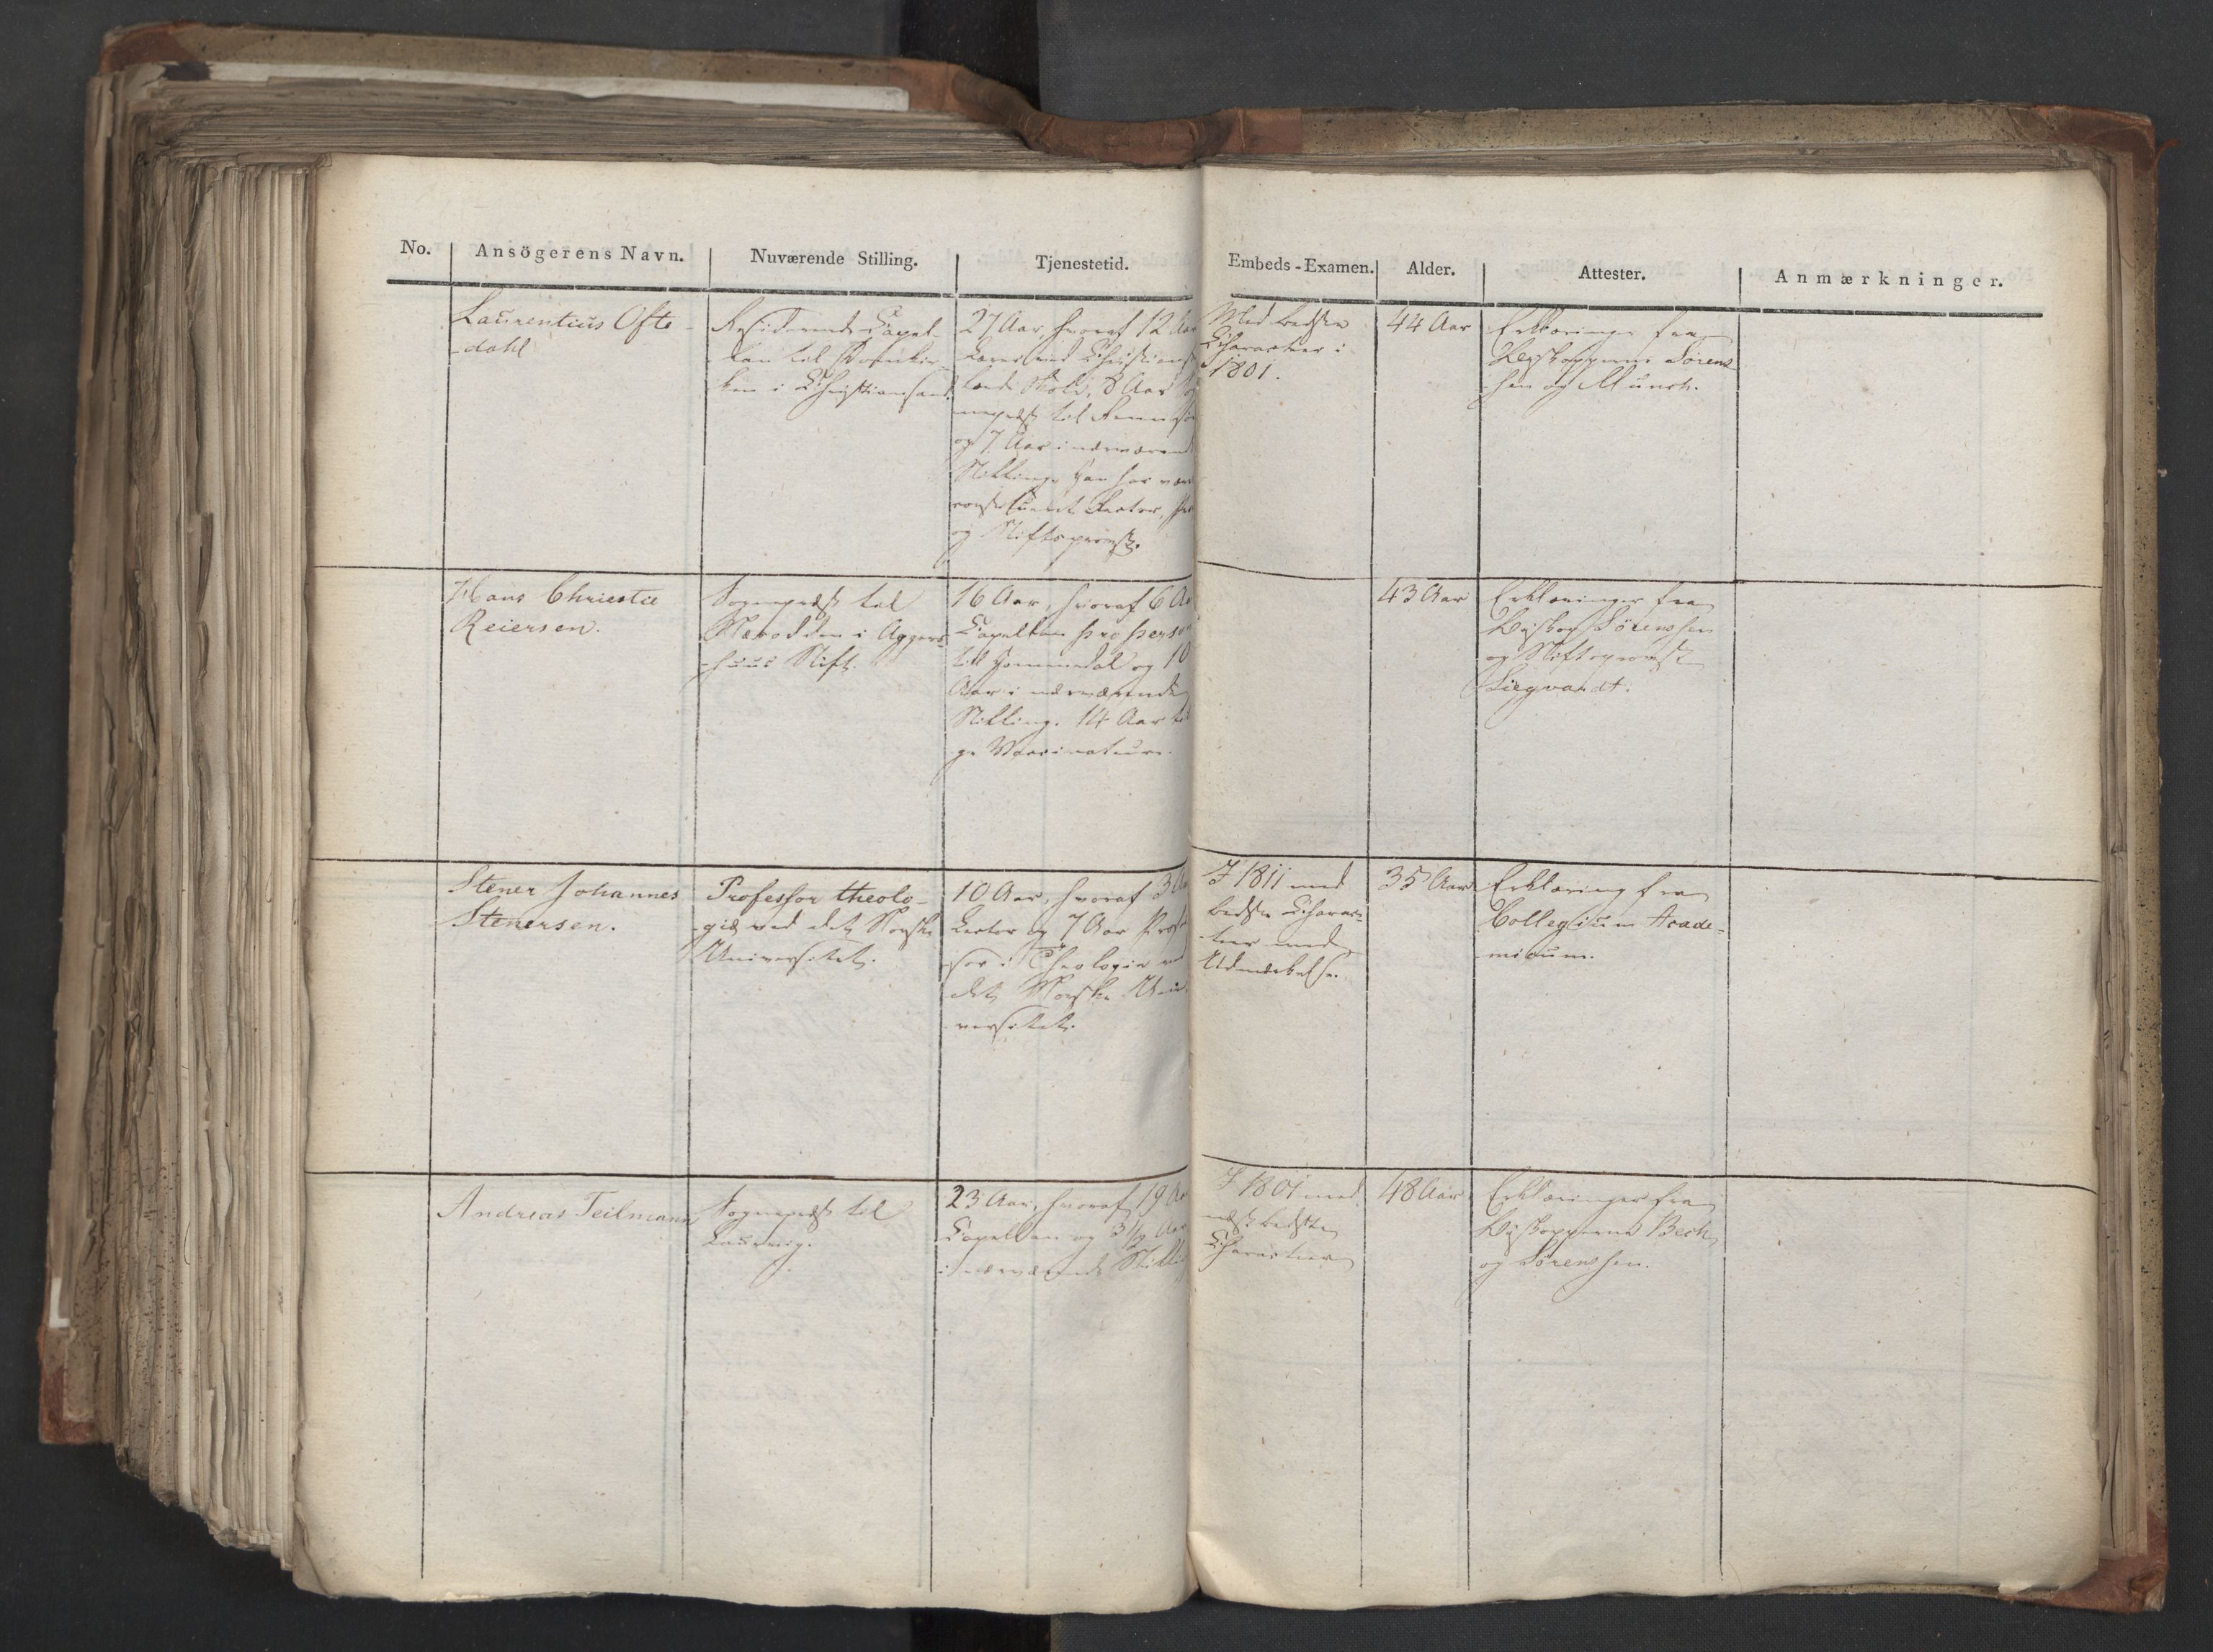 No. Ansögerens Navn. Nuværende Stilling. Tjenestetid. Embeds-Examen. Alder. Attester. Anmærkninger.
Laurentius Ofte-
-dahl
Residerende Capel-
lan til Domkir-
ken i Christiansand.
27 Aar, hvoraf 12 Aar
Lærer ved Christians
Skole, 8 Aar
til
og 7 Aar i nærværende
Stilling. Han har været
constitueret Rector,
og Stiftsprovst.
Med bedste
Character i
1801.
44 Aar
Erklæringer fra
Biskopperne Sörens-
sen og Munch.
Hans Christie
Reiersen.
Sognepræst til
Næsodden i Aggers-
-huus Stift.
16 Aar, hvoraf 6 Aar
Capellan pro persona
til og 10
Aar i nærværende
Stilling. 14 Aar
Vaccinateur.
43 Aar
Erklæringer fra
Biskop Sörenssen
og Stiftsprovst
Siegvardt.
Stener Johannes
Stenersen.
Professor theolo-
-giæ ved det Norske
Universitet.
10 Aar, hvoraf 3 Aar
Lector og 7 Aar Profes
sor i Theologie ved
det Norske Uni-
versitet.
I 1811 med
bedste Charac-
teer med
Udmærkelse.
35 Aar
Erklæring fra
Collegium Acade-
micum.
Andreas Teilmann
Sognepræst til
Laurvig.
23 Aar, hvoraf 19 Aar
Capellan og 3 1/2 Aar
i nærværende Stilling
I 1801 med
næst bedste
Characteer
48 Aar
Erklæringer fra
Biskopperne Bech
og Sörenssen.